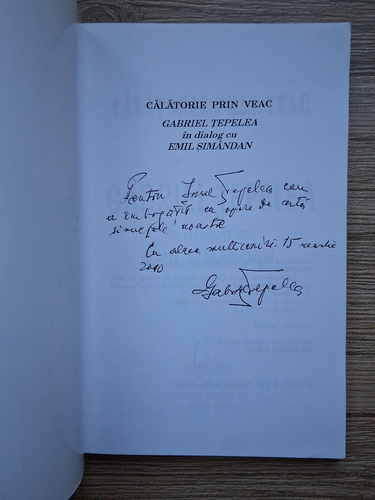 CĂLĂTORIE PRIN VEAC
GABRIEL ȚEPELEA
în dialog cu
EMIL ȘIMĂNDAN
Pentru Ionel Țepelea care
a îmbogățit cu opere de artă
noastre
Cu alese mulțumiri 15
2010
Gabriel Țepelea